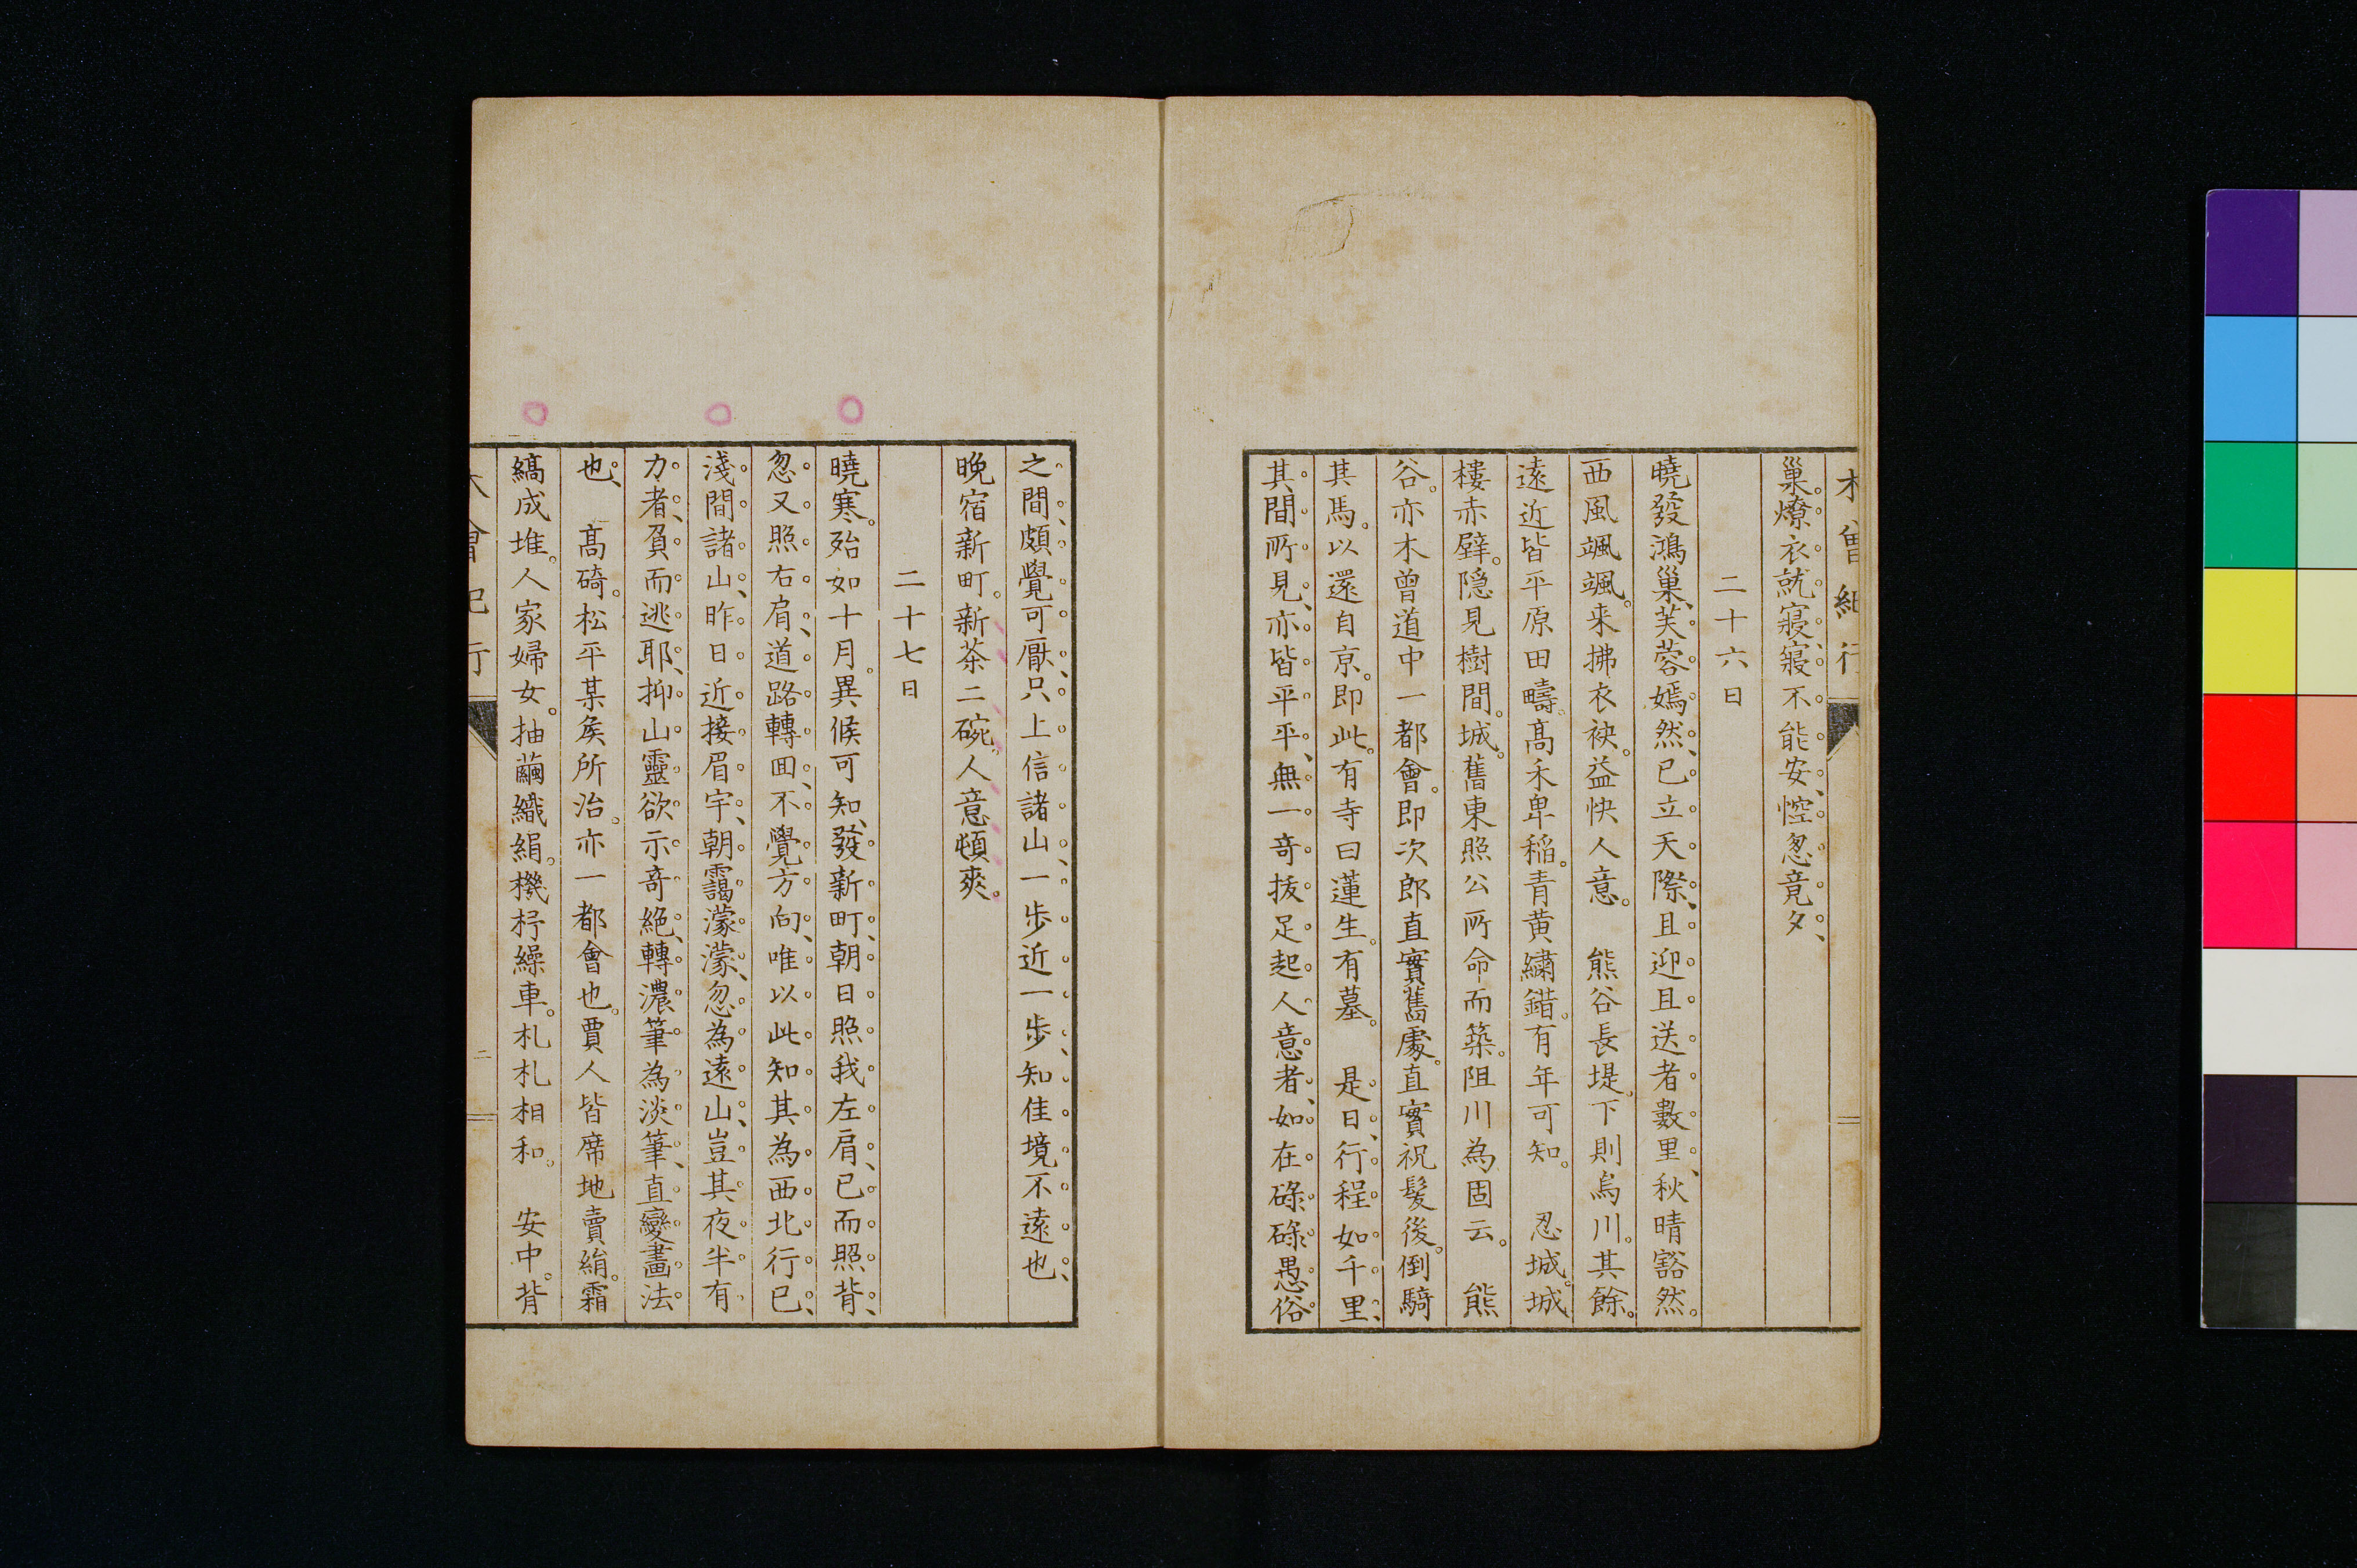 木曾紀行
巢燎衣就寢寢不能安悾怱竟夕
二十六日
曉發鴻巢芙蓉嫣然已立天際且迎且送者數里秋晴豁然
西風颯颯来拂衣袂益快人意　熊谷長堤下則烏川其餘
遠近皆平原田疇高禾卑稲青黄繡錯有年可知　忍城城
樓赤壁隠見樹間城舊東照公所命而築阻川為固云　熊
谷亦木曾道中一都會即次郎直實舊處直實祝髮後倒騎
其馬以還自京即此有寺曰蓮生有墓　是日行程如千里
其間所見亦皆平平無一奇拔足起人意者如在碌碌愚俗
之間頗覺可厭只上信諸山一步近一步知佳境不遠也
晩宿新町新茶二碗人意頓爽
二十七日
曉寒殆如十月異候可知發新町朝日照我左肩已而照背
忽又照右肩道路轉囬不覺方向唯以此知其為西北行已
淺間諸山昨日近接眉宇朝靄濛濛忽為遠山豈其夜半有
力者負而逃耶抑山靈欲示奇絶轉濃筆為淡筆直變畫法
也　高碕松平某矦所治亦一都會也賈人皆席地賣絹霜
縞成堆人家婦女抽繭織絹機杼繰車札札相和　安中背
木曾紀行
二